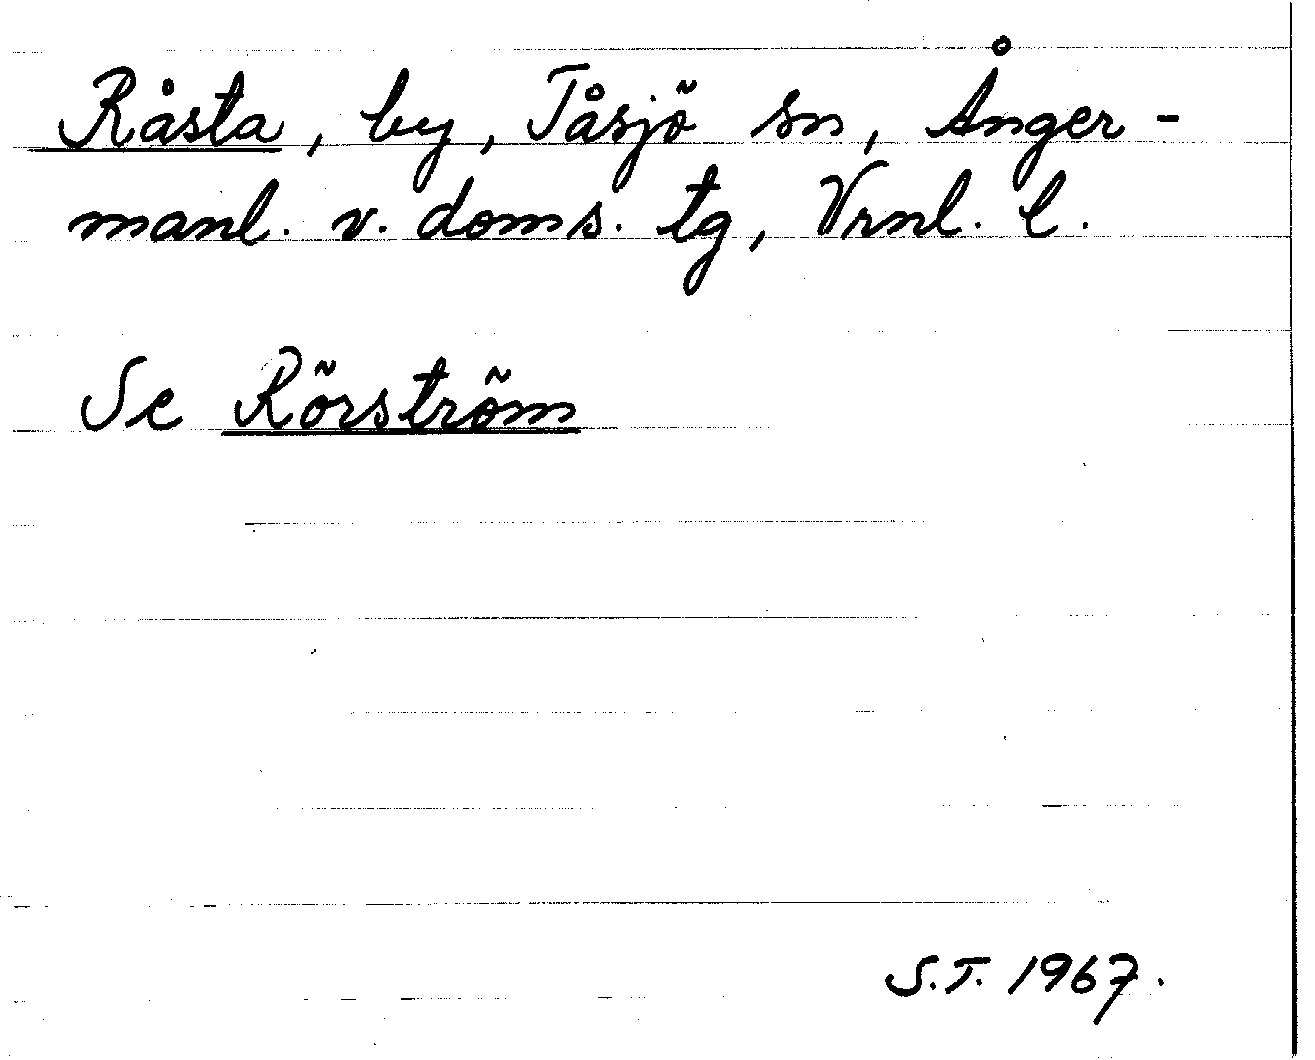 Råsta, by, Tåsjö sn, Ånger-
manl. v. doms. tg, Vrnl. l.
Se Rörström
S.T. 1967.